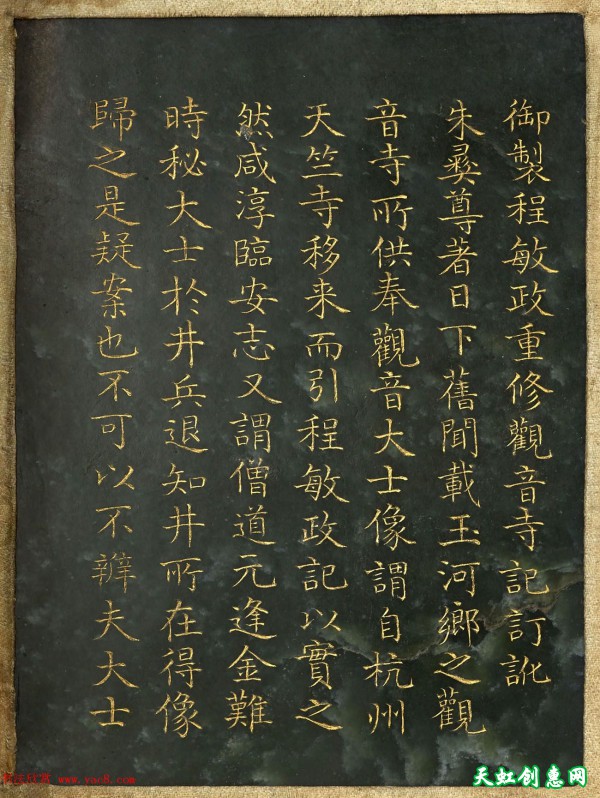 御製程敏政重修觀音寺記訂訛
朱彛尊著日下舊聞載玉河鄉之觀
音寺所供奉觀音大士像謂自杭州
天竺寺移来而引程敏政記以實之
然咸淳臨安志又謂僧道元逢金難
時秘大士於井兵退知井所在得像
歸之是疑案也不可以不辯夫大士
www.yac8.com
天虹创惠网